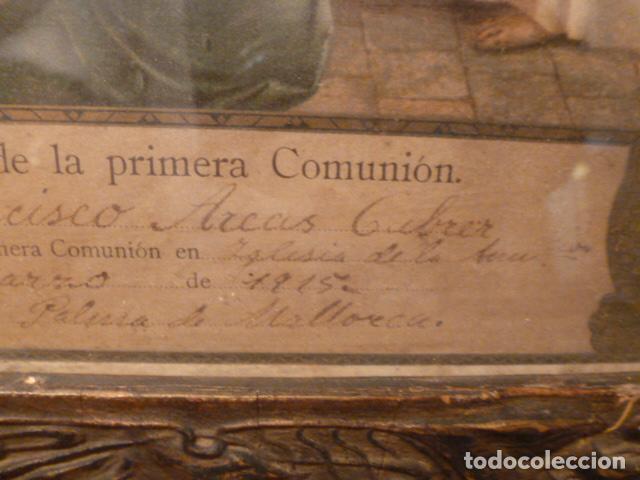 de la primera Comunión.
cisco Arcas Cabrer
mera Comunión en Iglesia de la
arzo de 1915
Palma de Mallorca.
todocoleccion